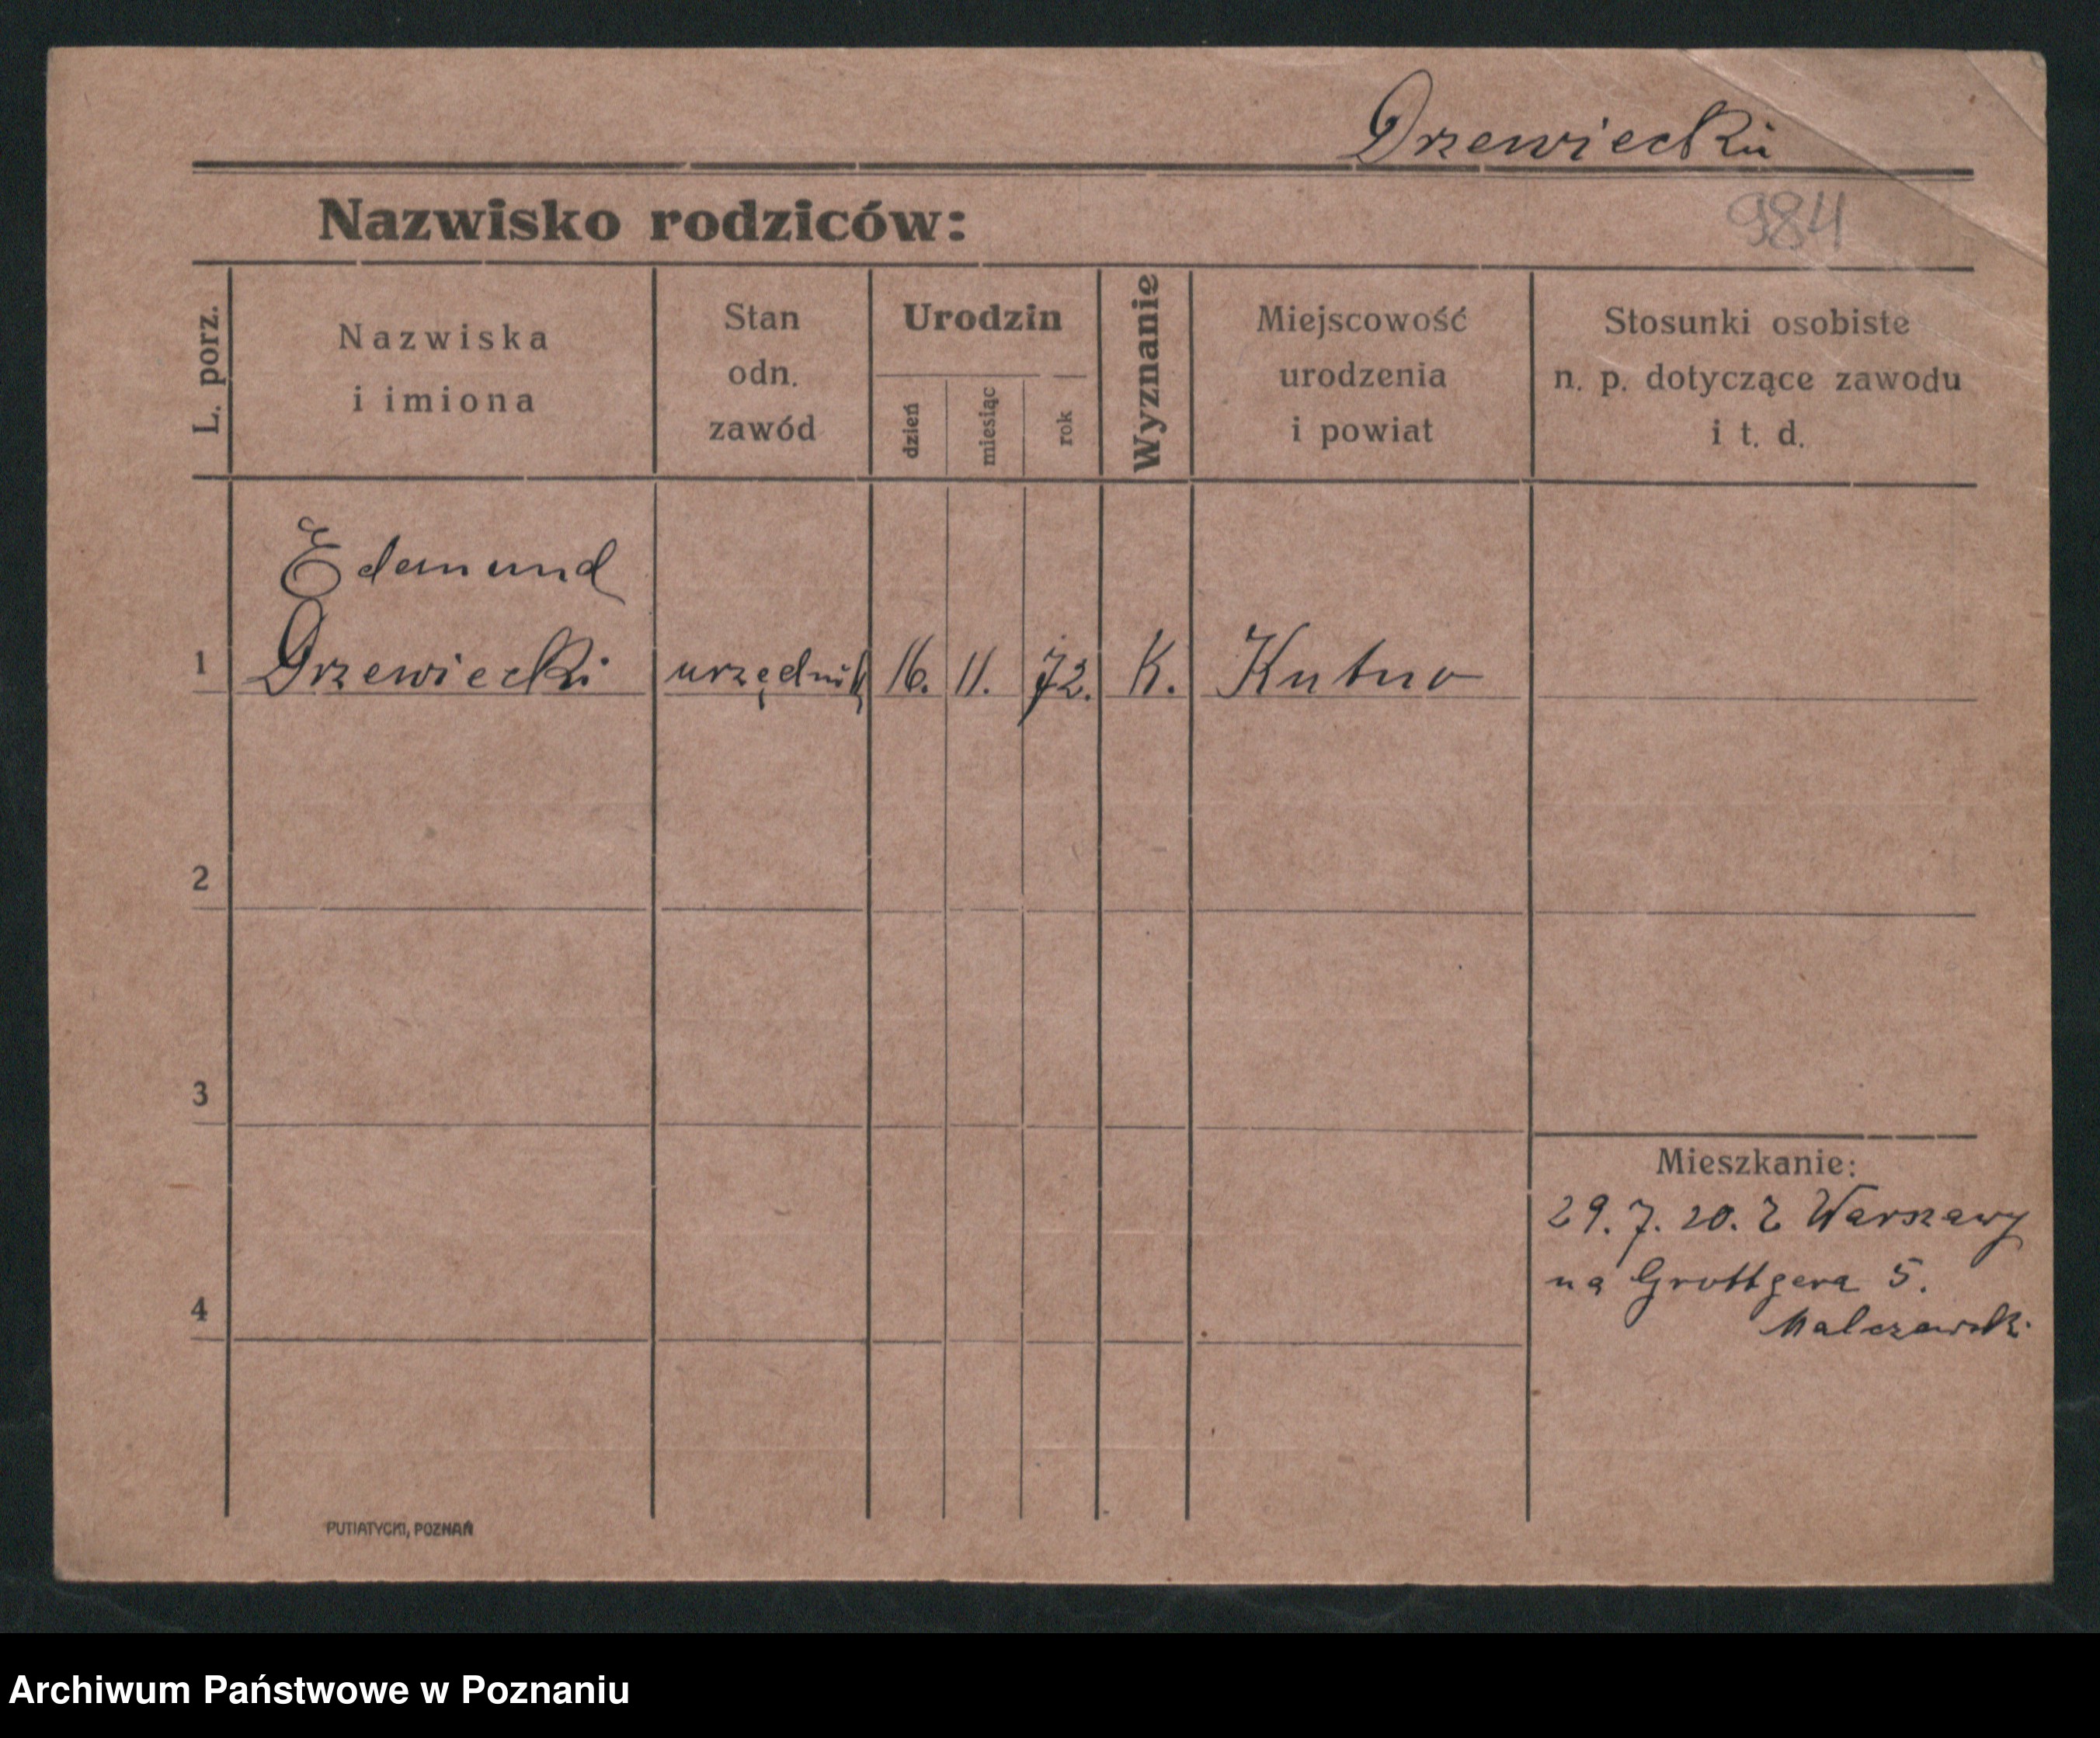 Drzewiecki
Nazwisko rodziców:
984
L. porz.
Nazwiska
i imiona
Stan
odn.
zawód
Urodzin
dzień
miesiąc
rok
Wyznanie
Miejscowość
urodzenia
i powiat
Stosunki osobiste
n. p. dotyczące zawodu
i t. d.
Edmund
1 Drzewiecki urzędnik 16. 11. 72. K. Kutno
2
3
4
Mieszkanie:
29. 7. 20. z Warszawy
na Grottgera 5.
Malczewski
PUTIATYCKI, POZNAŃ
Archiwum Państwowe w Poznaniu